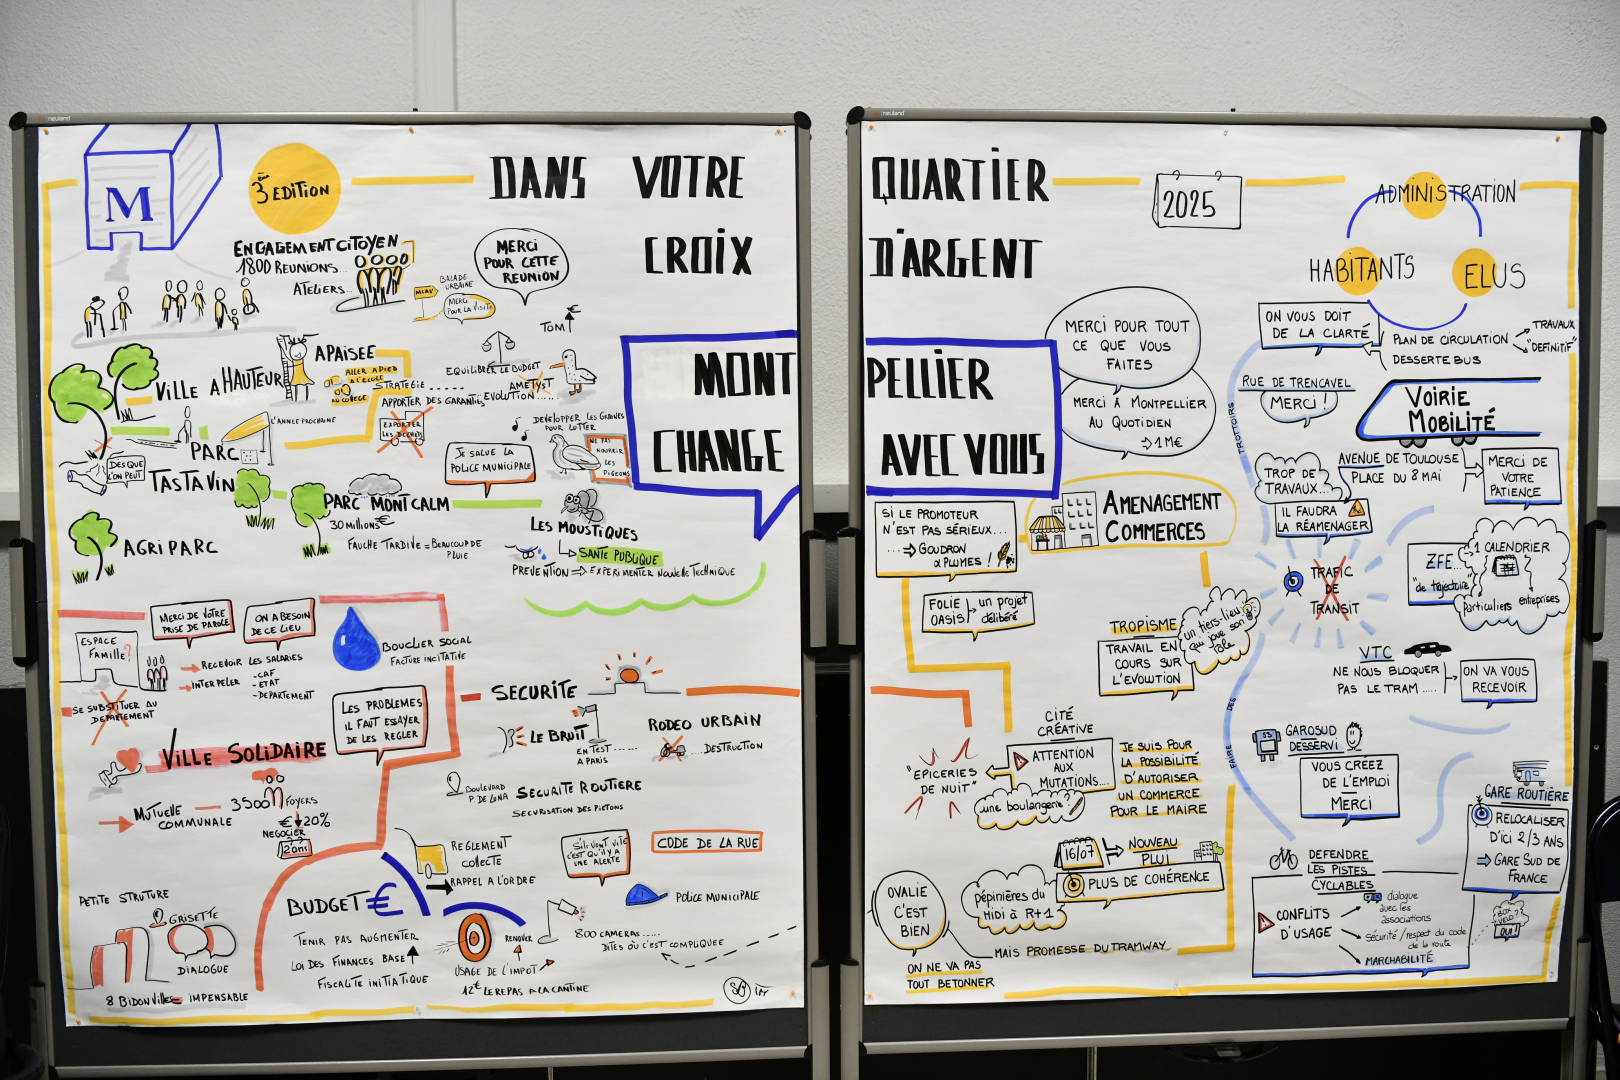 neuland
M
3ème EDITION
DANS VOTRE
CROIX
MONT
CHANGE
ENGAGEMENT CITOYEN
1800 REUNIONS...
ATELIERS...
MCAV
BALADE
URBAINE
MERCI
POUR LA VISITE
MERCI
POUR CETTE
REUNION
TOM
VILLE A HAUTEUR
APAISEE
ALLER A PIED
A L'ECOLE
AU COLLEGE
STRATEGIE ......
APPORTER DES GARANTIES
EXPORTER
LES DECHETS
EQUILIBRER LE BUDGET
AMETYST
EVOLUTION......
L'ANNEE PROCHAINE
PARC
TASTAVIN
DES QUE
L'ON PEUT
JE SALUE LA
POLICE MUNICIPALE
DEVELOPPER LES GRAINES
POUR LUTTER
NE PAS
NOURRIR
LES
PIGEONS
PARC MONTCALM
30 MILLIONS €
FAUCHE TARDIVE = BEAUCOUP DE
PLUIE
AGRIPARC
LES MOUSTIQUES
SANTE PUBLIQUE
PREVENTION ⇒ EXPERIMENTER NOUVELLE TECHNIQUE
MERCI DE VOTRE
PRISE DE PAROLE
ON A BESOIN
DE CE LIEU
ESPACE
FAMILLE?
RECEVOIR LES SALARIES
INTERPELER
-CAF
-ETAT
-DEPARTEMENT
SE SUBSTITUER AU
DEPARTEMENT
BOUCLIER SOCIAL
FACTURE INCITATIVE
LES PROBLEMES
IL FAUT ESSAYER
DE LES REGLER
VILLE SOLIDAIRE
MUTUELLE
COMMUNALE
3500 FOYERS
€ 20%
NEGOCIER
2 ans
SECURITE
LE BRUIT
EN TEST ......
A PARIS
RODEO URBAIN
... DESTRUCTION
BOULEVARD
P. DE LENA
SECURITE ROUTIERE
SECURISATION DES PIETONS
REGLEMENT
COLLECTE
RAPPEL A L'ORDRE
S'ILS VONT VITE
C'EST QU'IL Y A
UNE ALERTE
CODE DE LA RUE
POLICE MUNICIPALE
800 CAMERAS .....
DITES OÙ C'EST COMPLIQUEE
PETITE STRUTURE
GRISETTE
DIALOGUE
8 BIDONVILLES = IMPENSABLE
BUDGET €
TENIR PAS AUGMENTER
LOI DES FINANCES BASE
FISCALITE INITIATIQUE
RENOVER
USAGE DE L'IMPOT
12€ LE REPAS A LA CANTINE
neuland
QUARTIER
D'ARGENT
PELLIER
AVEC VOUS
2025
ADMINISTRATION
HABITANTS
ELUS
MERCI POUR TOUT
CE QUE VOUS
FAITES
MERCI À MONTPELLIER
AU QUOTIDIEN
⇒ 1 M€
ON VOUS DOIT
DE LA CLARTÉ
PLAN DE CIRCULATION
DESSERTE BUS
TRAVAUX
"DEFINITIF"
RUE DE TRENCAVEL
MERCI !
VOIRIE
MOBILITÉ
TROTTOIRS
TROP DE
TRAVAUX...
AVENUE DE TOULOUSE
PLACE DU 8 MAI
IL FAUDRA
LA RÉAMENAGER
MERCI DE
VOTRE
PATIENCE
SI LE PROMOTEUR
N'EST PAS SÉRIEUX...
...⇒ GOUDRON
& PLUMES !
AMENAGEMENT
COMMERCES
TRAFIC
DE
TRANSIT
ZFE...
"de trajectoire"
1 CALENDRIER
Particuliers entreprises
FOLIE
OASIS
un projet
délibéré
TROPISME
un tiers-lieu
qui joue son
rôle
TRAVAIL EN
COURS SUR
L'EVOLUTION
VTC
NE NOUS BLOQUER
PAS LE TRAM .....
ON VA VOUS
RECEVOIR
FAIRE
DES
CITÉ
CRÉATIVE
ATTENTION
AUX
MUTATIONS....
une boulangerie?
"EPICERIES
DE NUIT"
JE SUIS POUR
LA POSSIBILITÉ
D'AUTORISER
UN COMMERCE
POUR LE MAIRE
GAROSUD
DESSERVI
VOUS CRÉEZ
DE L'EMPLOI
MERCI
GARE ROUTIÈRE
RELOCALISER
D'ICI 2/3 ANS
⇒ GARE SUD DE
FRANCE
16/07
NOUVEAU
PLUI
PLUS DE COHÉRENCE
OVALIE
C'EST
BIEN
pépinières du
Midi à R+1
MAIS PROMESSE DU TRAMWAY
ON NE VA PAS
TOUT BETONNER
DEFENDRE
LES PISTES
CYCLABLES
CONFLITS
D'USAGE
dialogue
avec les
associations
Sécurité / respect du code
de la route
MARCHABILITÉ
BOX
VELO ??
OUI !